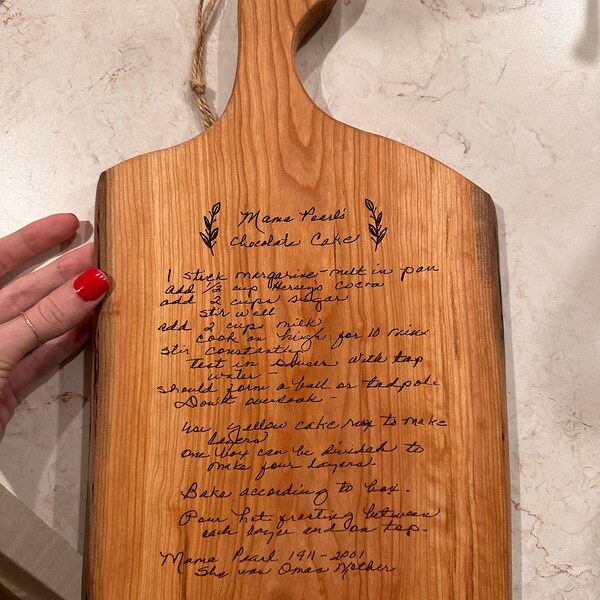 Mama Pearl's
Chocolate Cake
1 stick margarine - melt in pan
add 1/2 cup Hersey's Cocoa
add 2 cups sugar
stir well
add 2 cups milk
cook on high for 10 mins
stir constantly
test in sauser with tap
water -
should form a ball or tadpole
Don't overcook -
Use yellow cake mix to make
layers
One box can be divided to
make four layers.
Bake according to box.
Pour hot frosting between
each layer and on top.
Mama Pearl 1911-2001
She was Omas Mother